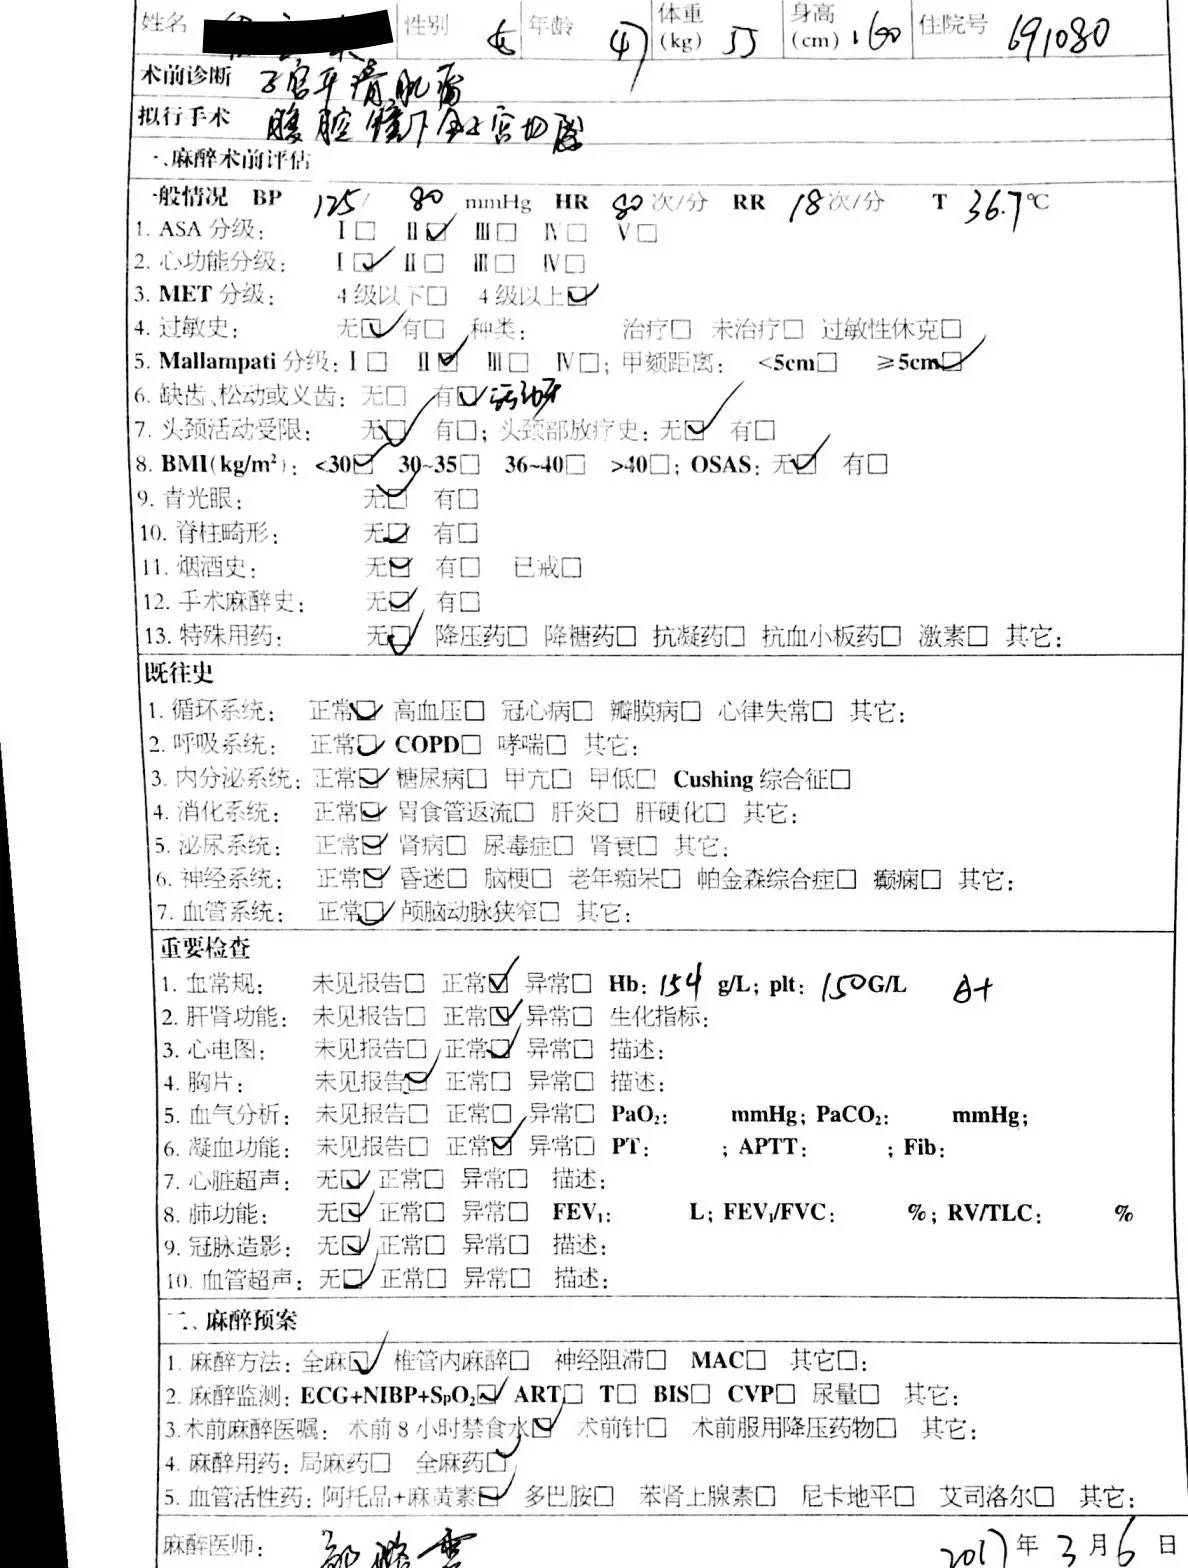 姓名 性别 女 年龄 47 体重(kg) 55 身高(cm) 160 住院号 691080
术前诊断 子宫平滑肌瘤
拟行手术 腹腔镜下全子宫切除
一、麻醉术前评估
一般情况 BP 125/ 80 mmHg HR 80 次/分 RR 18次/分 T 36.7℃
1. ASA 分级: Ⅰ□ Ⅱ☑ Ⅲ□ Ⅳ□ Ⅴ□
2. 心功能分级: Ⅰ☑ Ⅱ□ Ⅲ□ Ⅳ□
3. MET 分级: 4 级以下□ 4 级以上☑
4. 过敏史: 无☑ 有□ 种类: 治疗□ 未治疗□ 过敏性休克□
5. Mallampati 分级: Ⅰ□ Ⅱ☑ Ⅲ□ Ⅳ□; 甲颏距离: <5cm□ ≥5cm☑
6. 缺齿、松动或义齿: 无□ 有☑ 活动牙
7. 头颈活动受限: 无☑ 有□; 头颈部放疗史: 无☑ 有□
8. BMI(kg/m²): <30☑ 30~35□ 36~40□ >40□; OSAS: 无☑ 有□
9. 青光眼: 无☑ 有□
10. 脊柱畸形: 无☑ 有□
11. 烟酒史: 无☑ 有□ 已戒□
12. 手术麻醉史: 无☑ 有□
13. 特殊用药: 无☑ 降压药□ 降糖药□ 抗凝药□ 抗血小板药□ 激素□ 其它:
既往史
1. 循环系统: 正常☑ 高血压□ 冠心病□ 瓣膜病□ 心律失常□ 其它:
2. 呼吸系统: 正常☑ COPD□ 哮喘□ 其它:
3. 内分泌系统: 正常☑ 糖尿病□ 甲亢□ 甲低□ Cushing 综合征□
4. 消化系统: 正常☑ 胃食管返流□ 肝炎□ 肝硬化□ 其它:
5. 泌尿系统: 正常☑ 肾病□ 尿毒症□ 肾衰□ 其它:
6. 神经系统: 正常☑ 昏迷□ 脑梗□ 老年痴呆□ 帕金森综合症□ 癫痫□ 其它:
7. 血管系统: 正常☑ 颅脑动脉狭窄□ 其它:
重要检查
1. 血常规: 未见报告□ 正常☑ 异常□ Hb: 154 g/L; plt: 150G/L A+
2. 肝肾功能: 未见报告□ 正常☑ 异常□ 生化指标:
3. 心电图: 未见报告□ 正常☑ 异常□ 描述:
4. 胸片: 未见报告☑ 正常□ 异常□ 描述:
5. 血气分析: 未见报告□ 正常□ 异常□ PaO₂: mmHg; PaCO₂: mmHg;
6. 凝血功能: 未见报告□ 正常☑ 异常□ PT: ; APTT: ; Fib:
7. 心脏超声: 无☑ 正常□ 异常□ 描述:
8. 肺功能: 无☑ 正常□ 异常□ FEV₁: L; FEV₁/FVC: %; RV/TLC: %
9. 冠脉造影: 无☑ 正常□ 异常□ 描述:
10. 血管超声: 无☑ 正常□ 异常□ 描述:
二、麻醉预案
1. 麻醉方法: 全麻☑ 椎管内麻醉□ 神经阻滞□ MAC□ 其它□:
2. 麻醉监测: ECG+NIBP+SpO₂☑ ART□ T□ BIS□ CVP□ 尿量□ 其它:
3.术前麻醉医嘱: 术前 8 小时禁食水☑ 术前针□ 术前服用降压药物□ 其它:
4. 麻醉用药: 局麻药□ 全麻药☑
5. 血管活性药: 阿托品+麻黄素☑ 多巴胺□ 苯肾上腺素□ 尼卡地平□ 艾司洛尔□ 其它:
麻醉医师: 2017 年 3 月 6 日